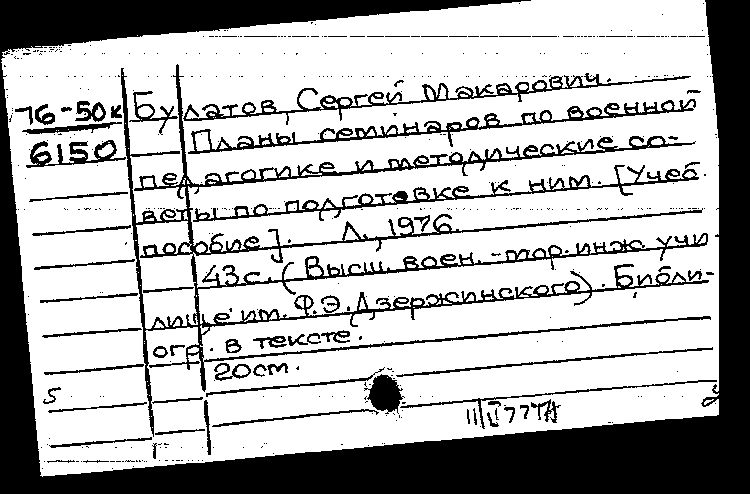 76-50к Булатов, Сергей Макарович.
6150 Планы семинаров по военной
педагогике и методические со-
веты по подготовке к ним. [Учеб.
пособие]. Л., 1976.
43с. (Высш. воен.-мор. инж. учи-
лище им. Ф.Э. Дзержинского). Библи-
огр. в тексте.
20см.
5